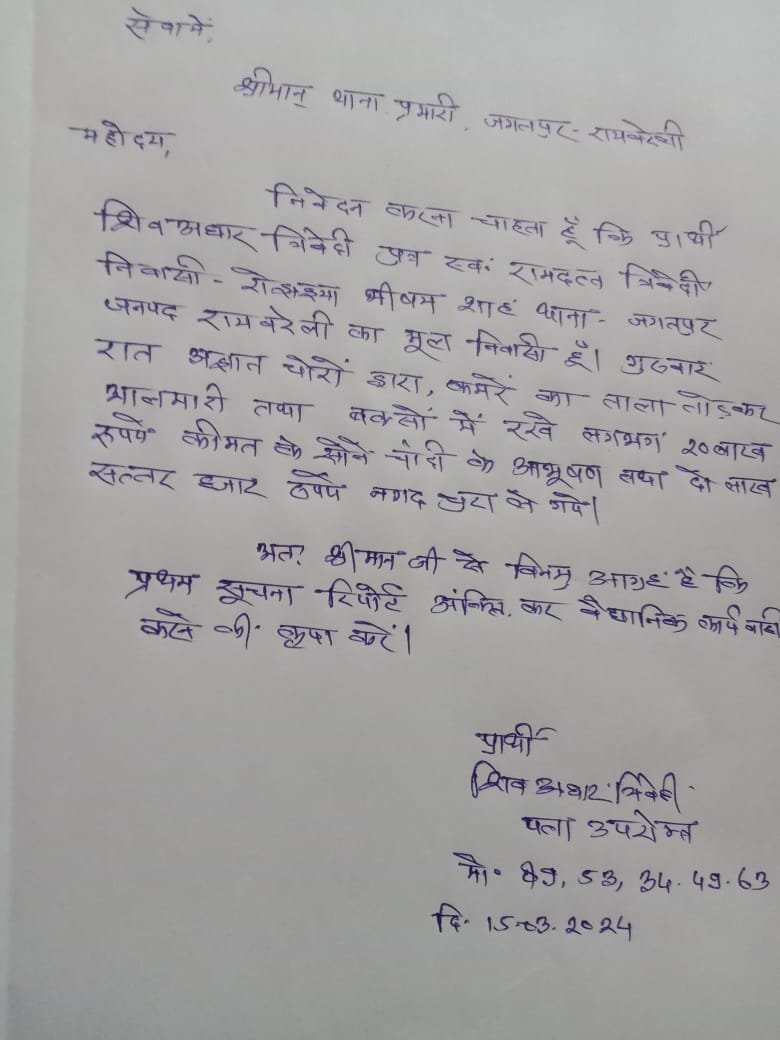 सेवा में,
श्रीमान् थाना प्रभारी, जगतपुर- रायबरेली
महोदय,
निवेदन करना चाहता हूँ कि प्रार्थी
शिव अधार त्रिवेदी पुत्र स्व. रामदत्त त्रिवेदी
निवासी - भीषम शाह थाना- जगतपुर
जनपद रायबरेली का मूल निवासी हूँ। गुरुवार
रात अज्ञात चोरों द्वारा, कमरें का ताला तोड़कर
आलमारी तथा बक्सों में रखे लगभग २० लाख
रुपये कीमत के सोने चांदी के आभूषण तथा दो लाख
सत्तर हजार रुपये नगद चुरा ले गये।
अतः श्रीमान जी से विनम्र आग्रह है कि
प्रथम सूचना रिपोर्ट अंकित कर वैधानिक कार्यवाही
करने की कृपा करें।
प्रार्थी
शिव अधार त्रिवेदी
पता उपरोक्त
मो॰ 89, 53, 34. 49. 63
दि. 15-03. 2024